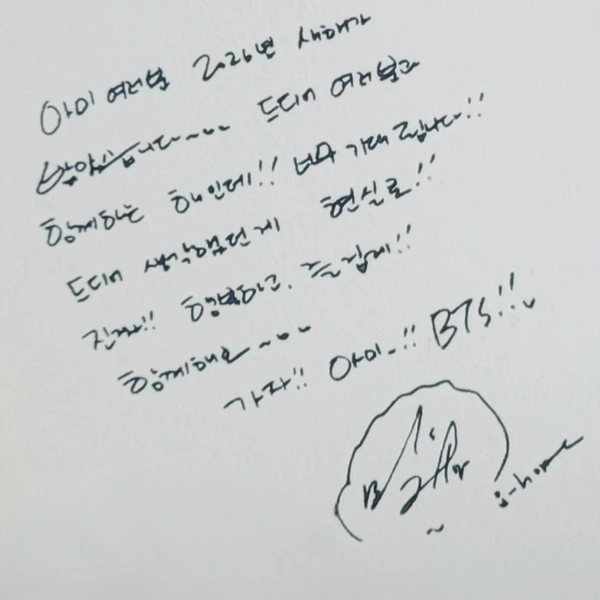 아미 여러분 2026년 새해가
밝았습니다~~~ 드디어 여러분과
함께하는 해인데!! 너무 기대됩니다!!
드디어 생각했던게 현실로!!
진짜!! 행복하고, 즐겁게!!
함께해요~~~
가자!! 아미~!! BTS!!
j-hope